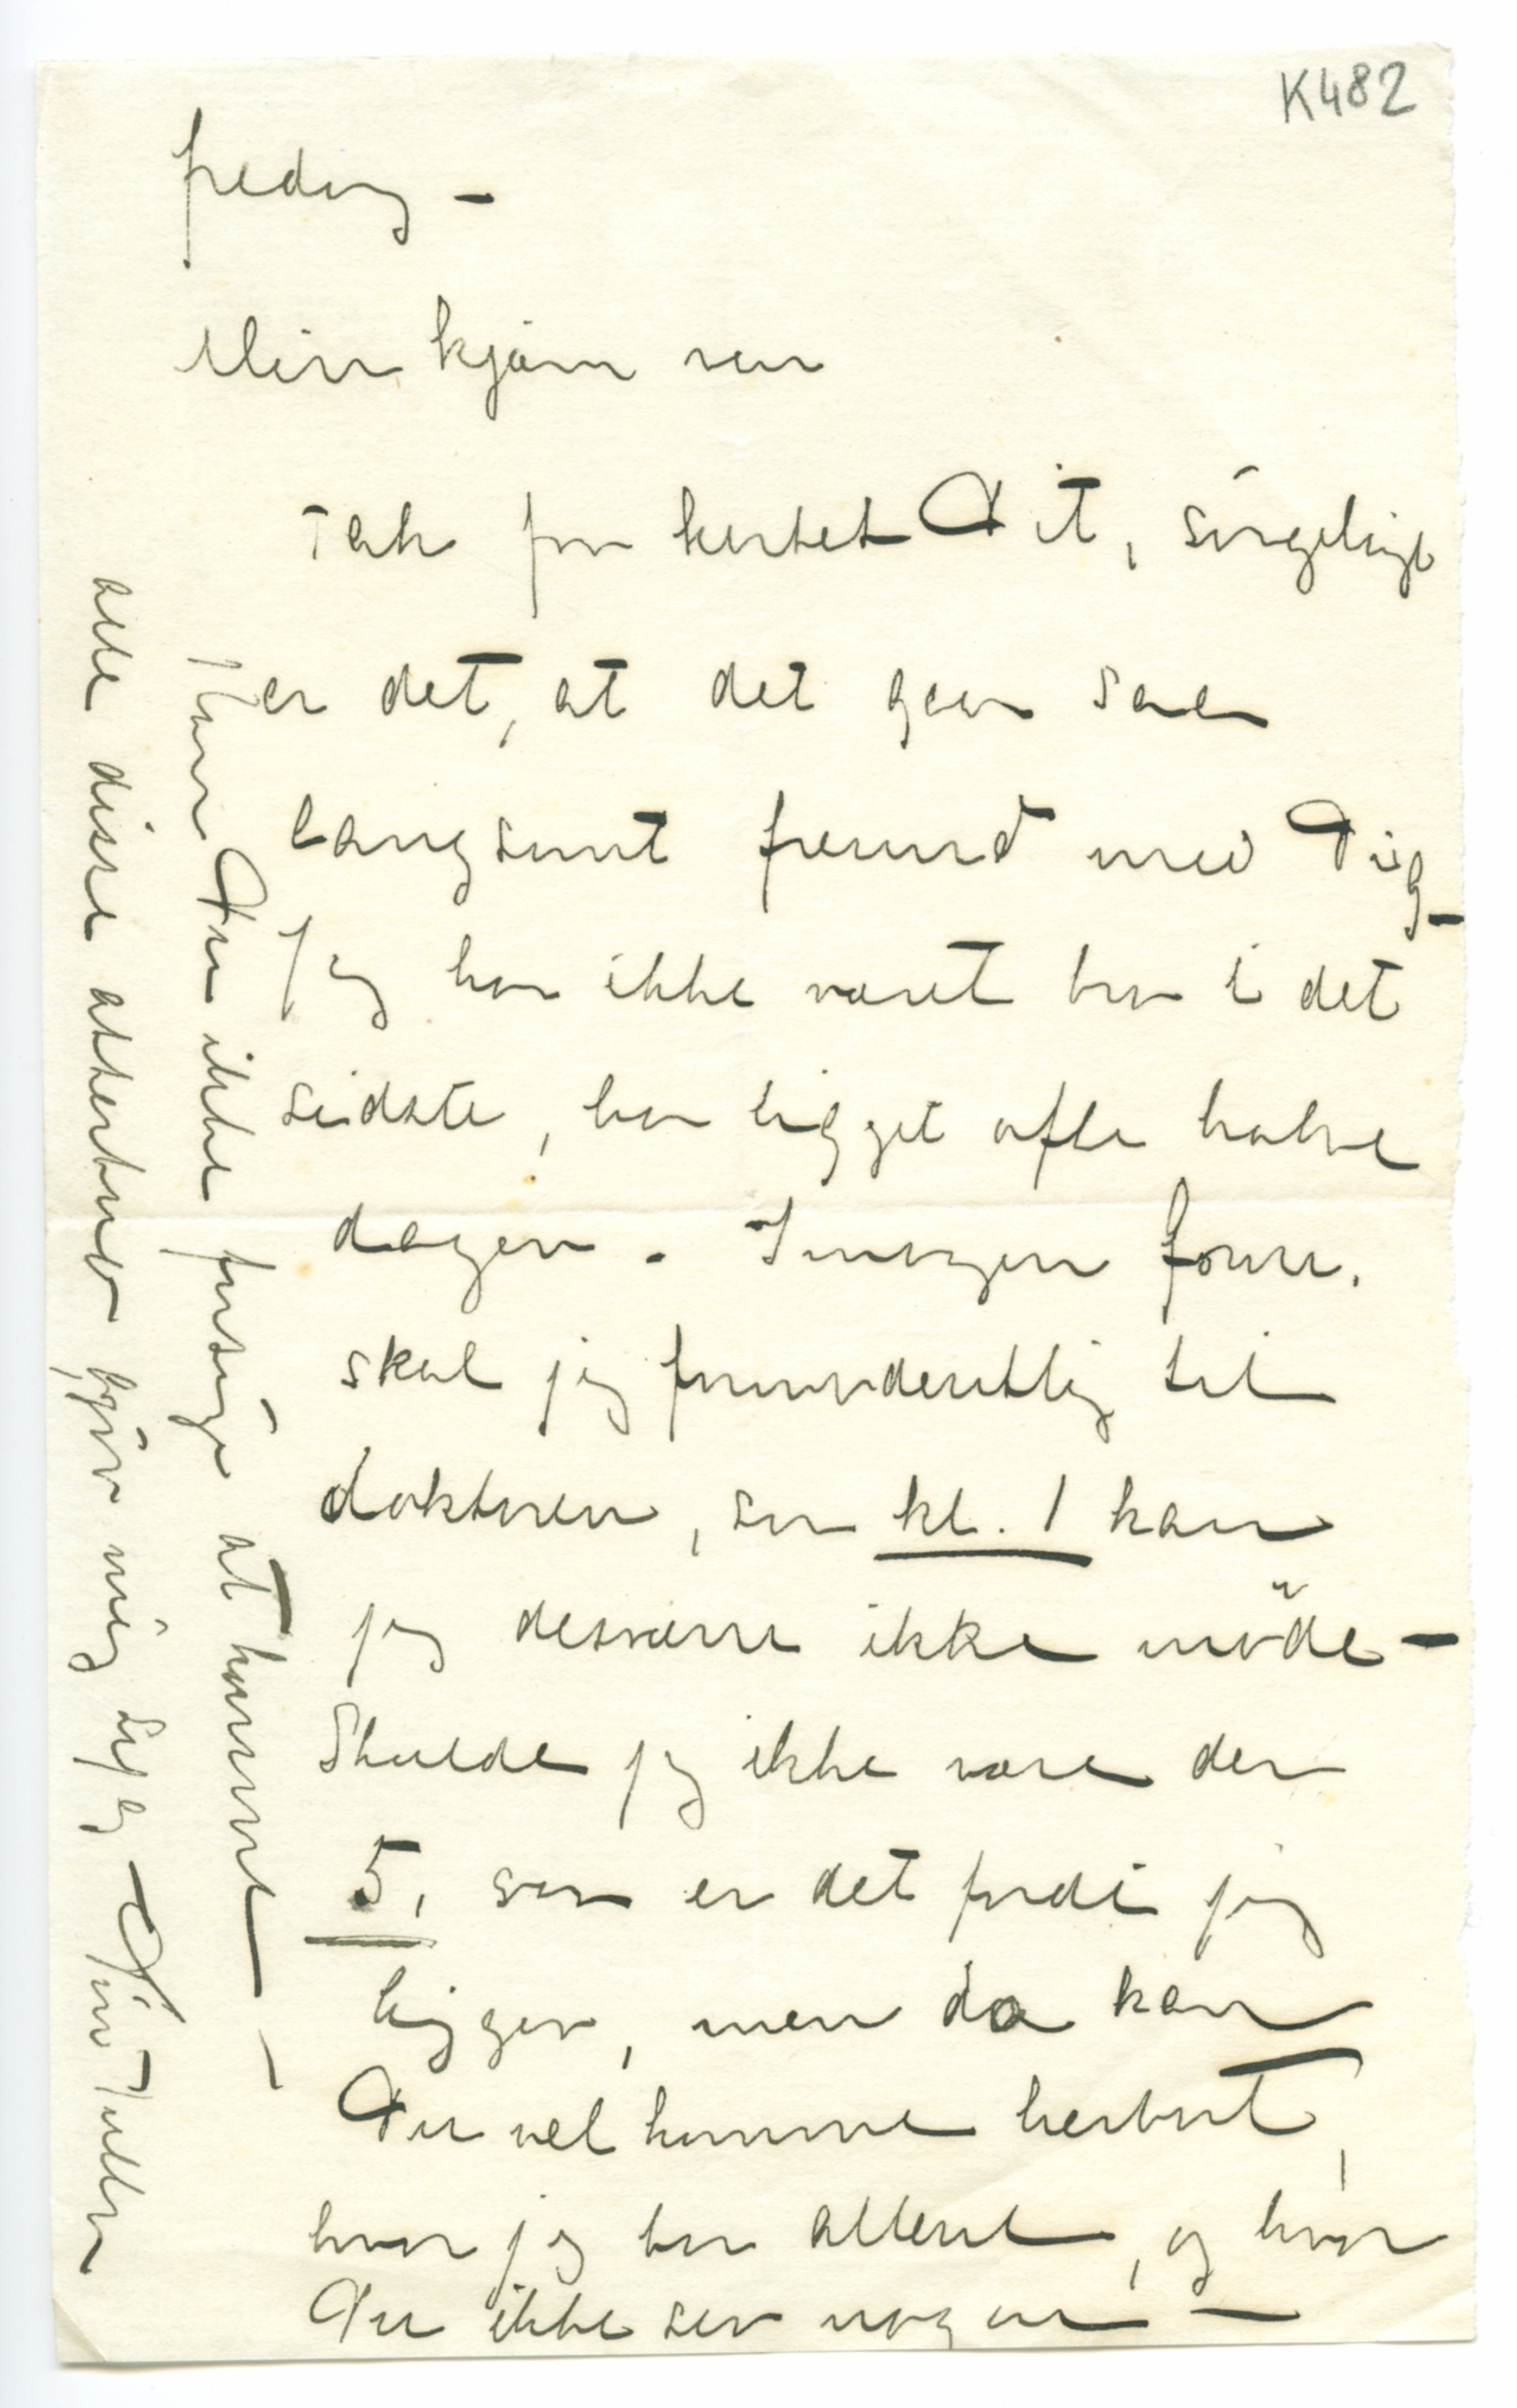 K482
fredag –
Min kjære ven
Tak for kortet Dit, sørgeligt
er det, at det gaar saa
langsomt fremad med Dig –
Jeg har ikke været bra i det
sidste, har ligget ofte halve
dagen. Imorgen form.
skal jeg formodentlig til
doktoren, saa kl. 1 kan
jeg desværre ikke möde –
Skulde jeg ikke være der
5, saa er det fordi jeg
ligger, men da kan
Du vel komme herbort,
hvor jeg bor alene, og hvor
Du ikke ser nogen –
Kan Du ikke forsøge at komme –
alle disse attentater gjør mig syg – Din Tulla